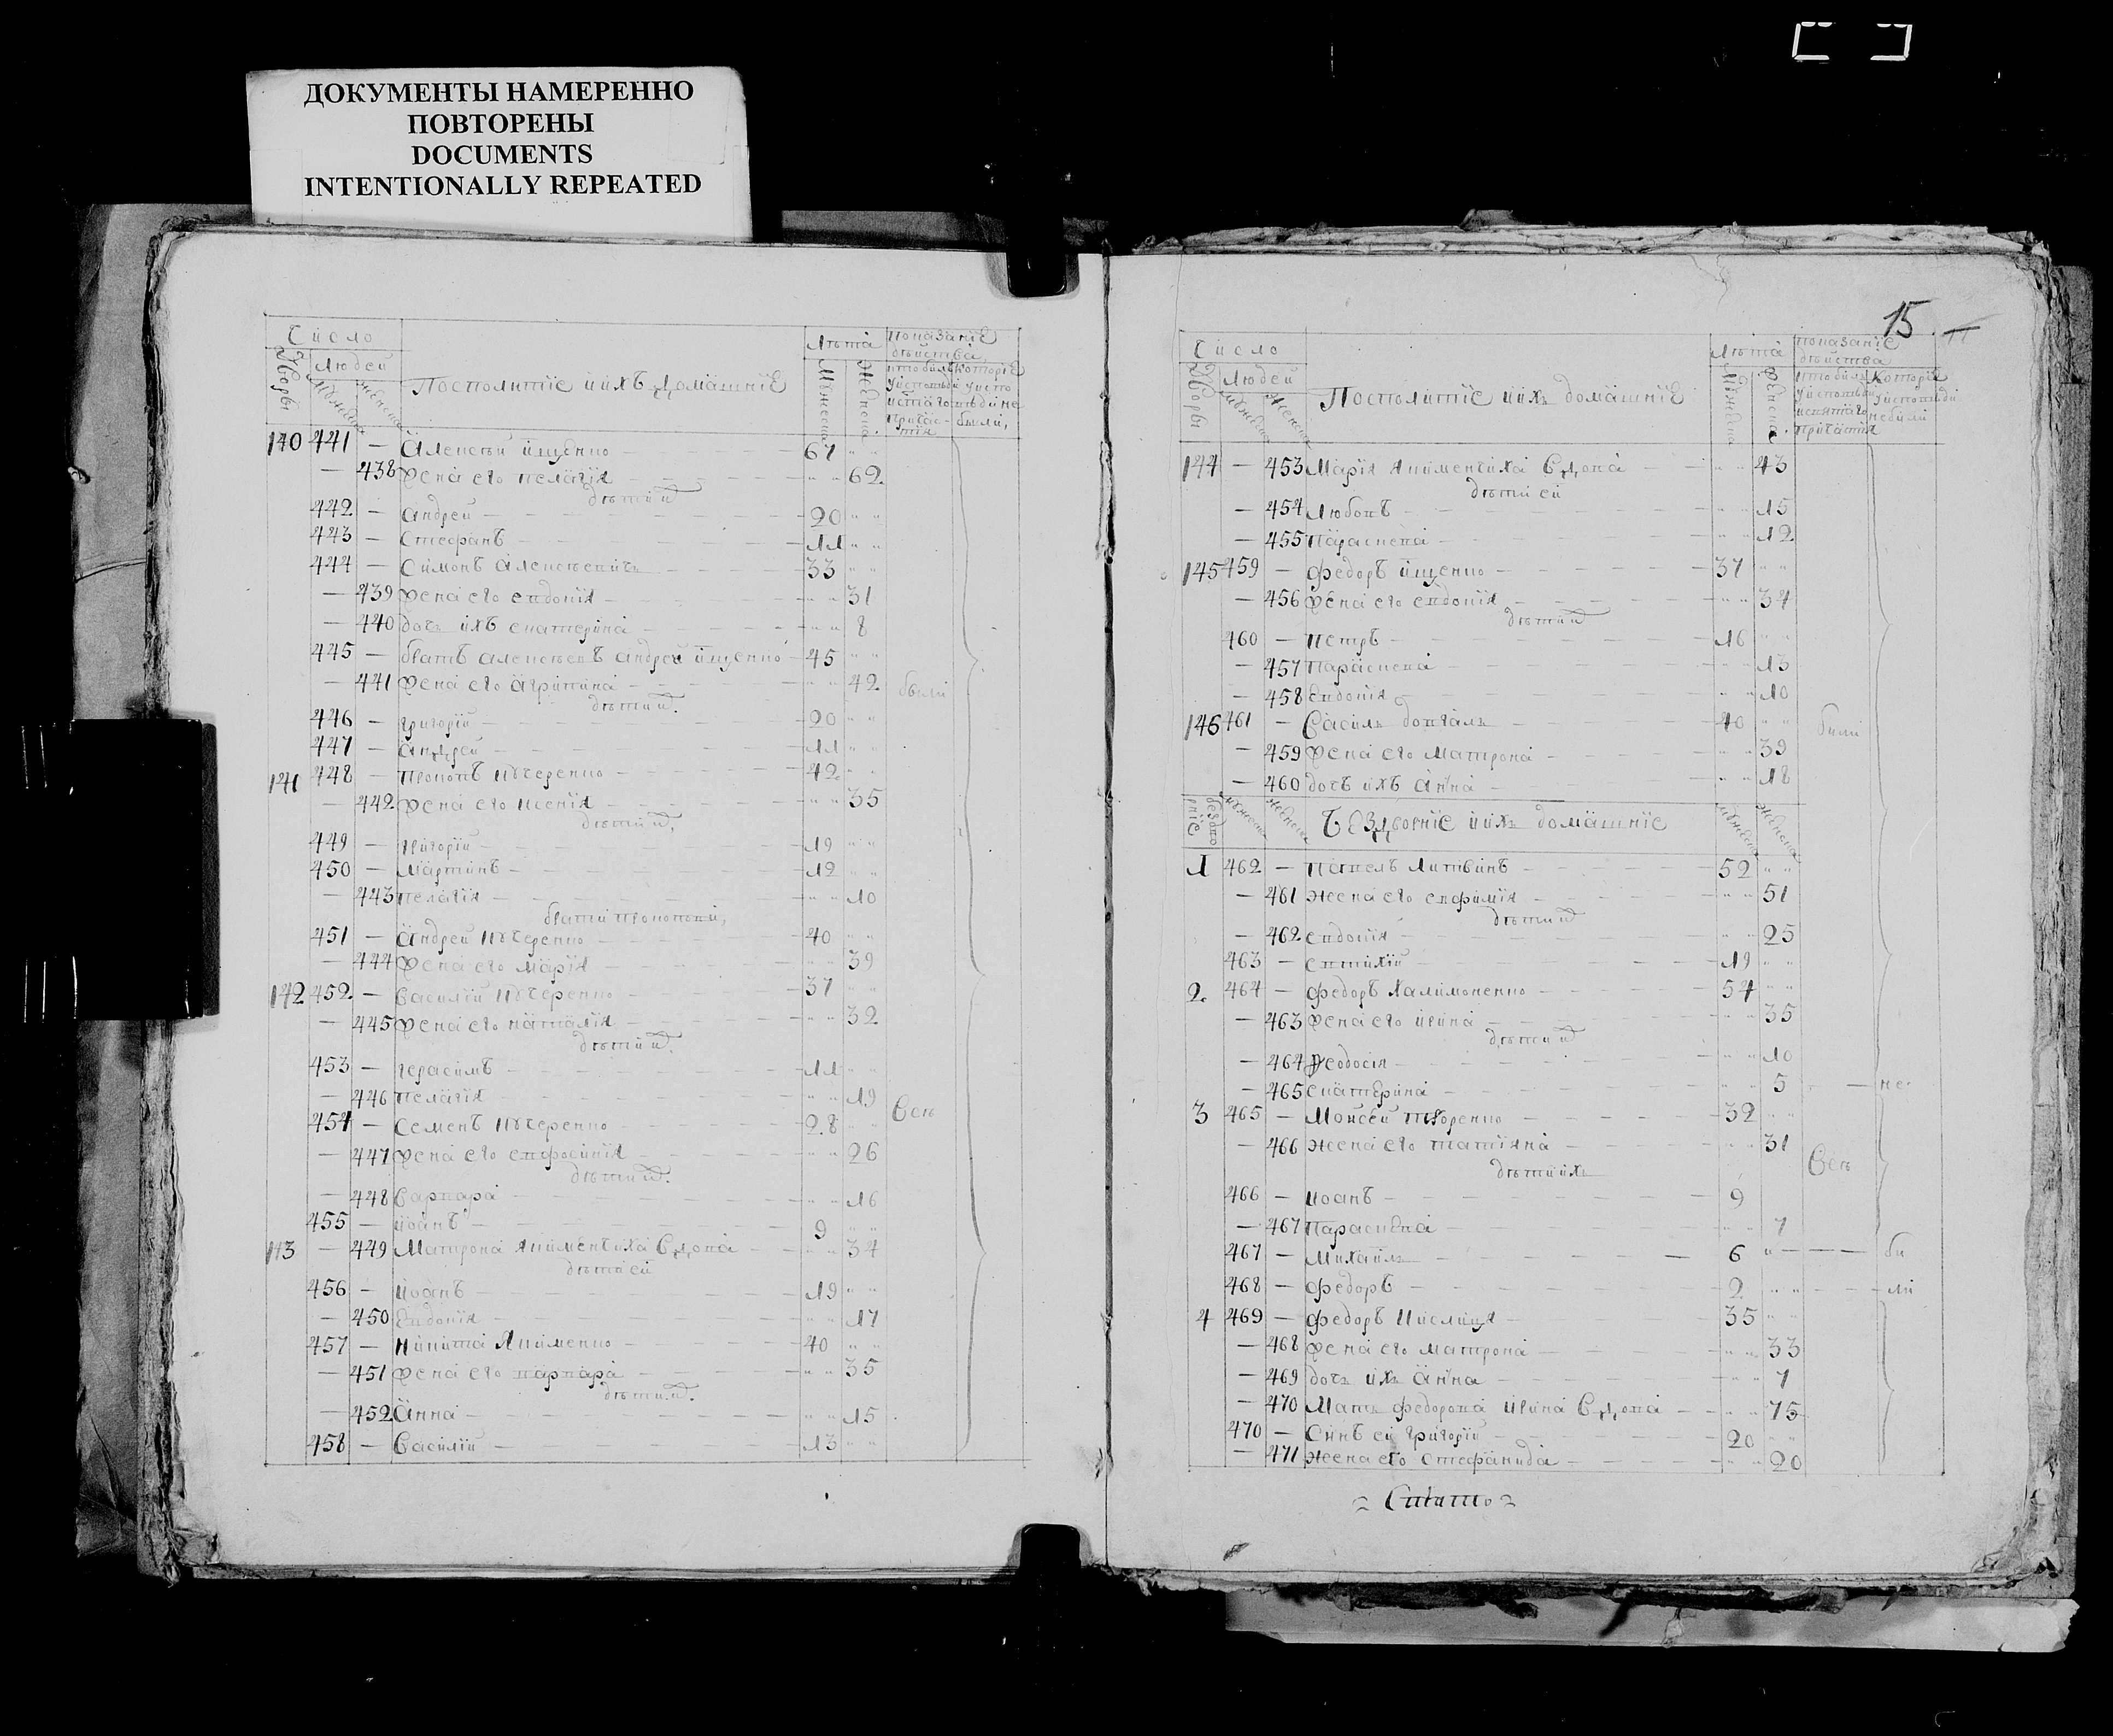 ДОКУМЕНТЫ НАМЕРЕННО
ПОВТОРЕНЫ
DOCUMENTS
INTENTIONALLY REPEATED
Число
Людей
Посполитіе и ихъ домашніе
Лѣта
показаніе
Дворы
мужеска
женска
140 441 — Алексѣй Ищенко — 67
— 438 жена его Пелагія — 62
дѣти их
442 — Андрей — 20
443 — Стефанъ — 11
444 — Симонъ Алексѣевичъ — 33
— 439 жена его Евдокія — 31
— 440 дочь ихъ Екатерина — 8
445 — братъ Алексѣевъ Андрей Ищенко — 45
— 441 жена его Агрипина — 42
были
дѣти их
446 — Григорій — 20
447 — Андрей — 11
141 448 — Прокопъ Кучеренко — 42
— 442 жена его Ксенія — 35
дѣти их
449 — Григорій — 19
450 — Мартинъ — 12
— 443 Пелагія — 10
451 — Андрей Кучеренко — 40
— 444 жена его Марія — 39
142 452 — Василій Кучеренко — 37
— 445 жена его Наталія — 32
дѣти их
453 — Герасимъ — 11
— 446 Пелагія — 19
Всѣ
454 — Семенъ Кучеренко — 28
— 447 жена его Евфросинія — 26
дѣти их
— 448 Варвара — 16
455 — Іоанъ — 9
143 — 449 Матрона Акименчиха вдова — 34
дѣти ея
456 — Іоанъ — 19
— 450 Евдокія — 17
457 — Никита Якименко — 40
— 451 жена его Варвара — 35
дѣти их
— 452 Анна — 15
458 — Василій — 13
15
Число
Людей
Посполитіе и ихъ домашніе
Лѣта
показаніе
Дворы
мужеска
женска
144 — 453 Марія Акименчиха вдова — 43
дѣти ей
— 454 Любовъ — 15
— 455 Параскева — 12
145 459 — Федоръ Ищенко — 37
— 456 жена его Евдокія — 34
дѣти их
460 — Петръ — 16
— 457 Параскева — 13
— 458 Евдокія — 10
146 461 — Василь Довгаль — 40
были
— 459 жена его Матрона — 39
— 460 дочъ ихъ Анна — 18
Бездворніе и ихъ домашніе
мужеска
женска
1 462 — Павелъ Литвинъ — 52
— 461 жена его Евфимія — 51
дѣти их
— 462 Евдокія — 25
463 — Евтихій — 19
2 464 — Федоръ Халимоненко — 54
— 463 жена его Ирина — 35
дѣти их
— 464 Феодосія — 10
— 465 Екатерина — 5 — не
3 465 — Мойсей — 32
— 466 жена его Татіяна — 31
Всѣ
дѣти ихъ
466 — Іоанъ — 9
— 467 Параскева — 7
467 — Михаилъ — 6 — бы
468 — Федоръ — 2 — ли
4 469 — Федоръ Кислиця — 35
— 468 жена его Матрона — 33
— 469 дочь ихъ Анна — 7
— 470 Мать Федорова Ирина вдова — 75
470 — Синъ ей Григорій — 20
— 471 жена его Стефанида — 20